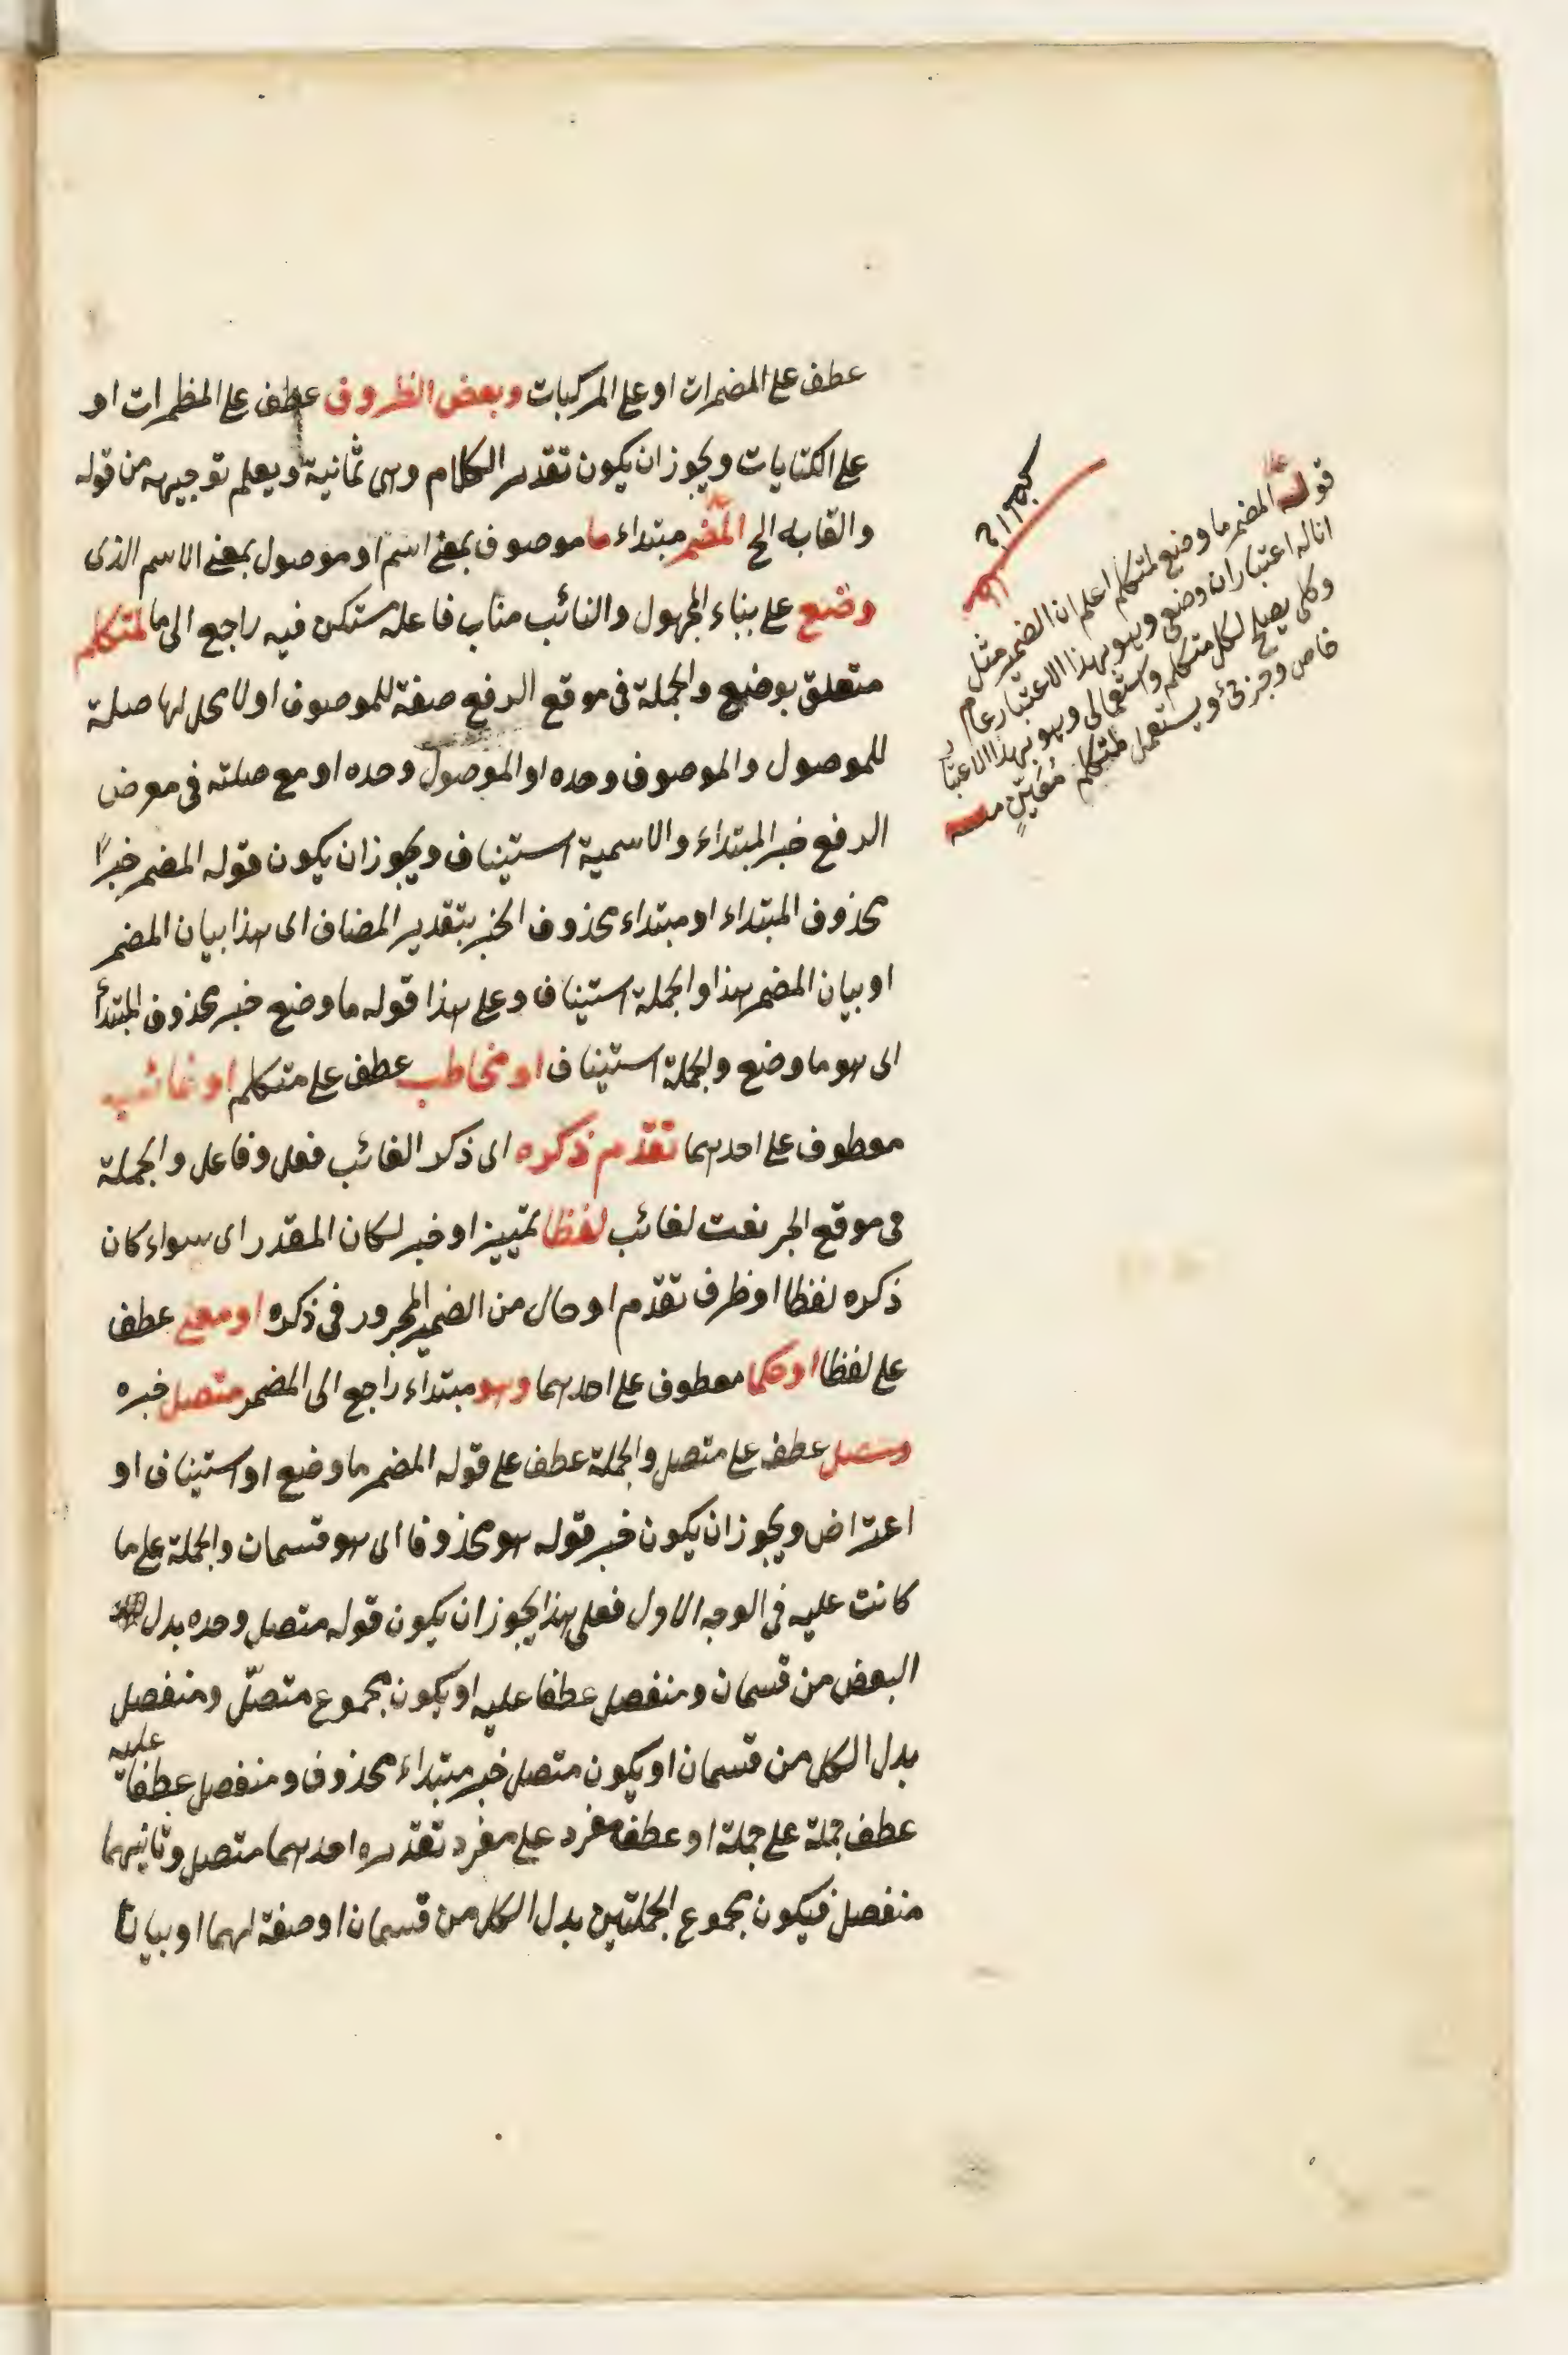 عطف على المضمرات او على المركبات وبعض الظروف عطف على المظمرات او
على الكنايات ويجوز ان يكون تقدير الكلام وهى ثمانية ويعلم توجيهه من قوله
والقابه الخ المضمر مبتداء ما موصوف بمعنى اسم او موصول بمعنى الاسم الذى
وضع على بناء المجهول والنائب مناب فاعله مستكن فيه راجع الى ما لمتكلم
متعلق بوضع والجملة فى موقع الرفع صفة للموصوف او لا محل لها صلة
للموصول والموصوف وحده او الموصول وحده او مع صلته فى معرض
الرفع خبر المبتداء والاسمية استيناف ويجوز ان يكون قوله المضمر خبرًا
محذوف المبتداء او مبتداء محذوف الخبر بتقدير المضاف اى هذا بيان المضمر
او بيان المضمر هذا والجملة استيناف وعلى هذا قوله ما وضع خبر محذوف المبتدأ
اى هو ما وضع والجملة استيناف او مخاطب عطف على متكلم او غائب
معطوف على احدهما تقدّم ذكره اى ذكر الغائب فعل وفاعل والجملة
فى موقع الجر نعت لغائب لفظا تمييز او خبر لكان المقدر اى سواء كان
ذكره لفظا او ظرف تقدّم او حال من الضمير المجرور فى ذكره او معنى عطف
على لفظا او حكما معطوف على احدهما وهو مبتداء راجع الى المضمر متصل خبره
ومنفصل عطف على متصل والجملة عطف على قوله المضمر ما وضع او استيناف او
اعتراض ويجوز ان يكون خبر قوله هو محذوفا اى هو قسمان والجملة على ما
كانت عليه فى الوجه الاول فعلى هذا يجوز ان يكون قوله متصل وحده بدل
البعض من قسمان ومنفصل عطفا عليه او يكون مجموع متصل ومنفصل
بدل الكل من قسمان او يكون متصل خبر مبتداء محذوف ومنفصل عطفا عليه
عطف جملة على جملة او عطف مفرد على مفرد تقديره احدهما متصل وثانيهما
منفصل فيكون مجموع الجملتين بدل الكل من قسمان او صفة لهما او بيانا
قوله المضمر ما وضع لمتكلم اعلم ان الضمير مثل
انا له اعتباران وضعى وهو بهذا الاعتبار عام
وكلى يصلح لكل متكلم واستعمالى وهو بهذا الاعتبار
خاص وجزئى ويستعمل لمتكلم مُعَيّنٍ منه